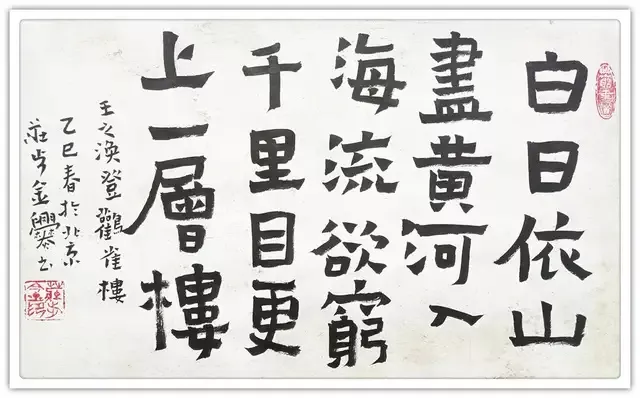 白日依山
盡黄河入
海流欲窮
千里目更
上一層樓
王之渙登鸛雀樓
乙巳春於北京